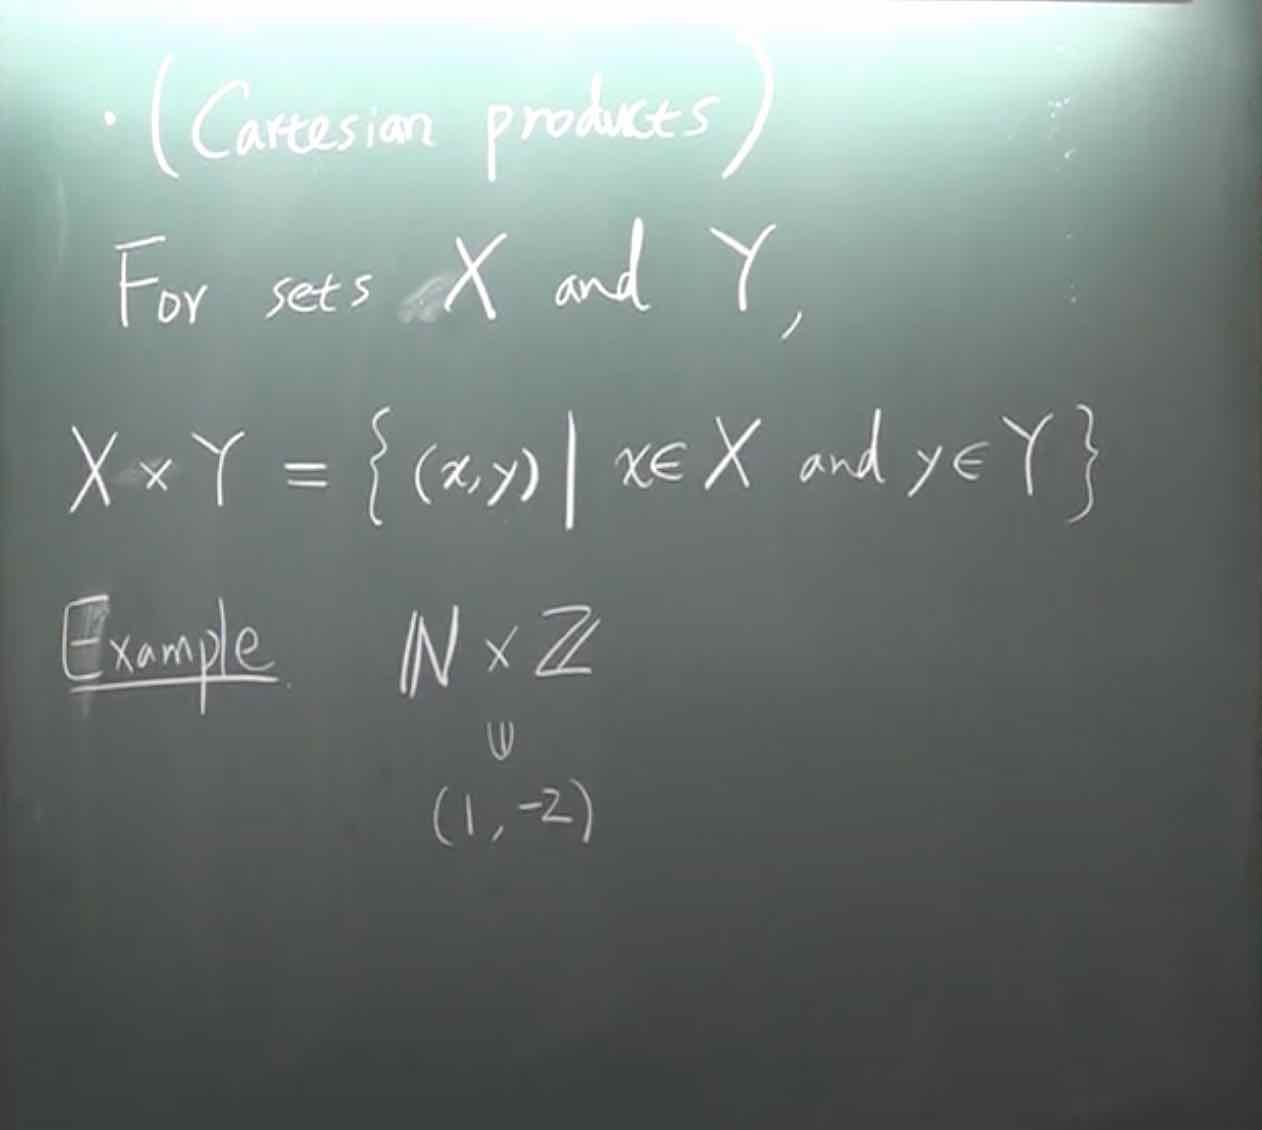 · (Cartesian products)
For sets X and Y,
X × Y = { (x,y) | x∈X and y∈Y }
Example. ℕ × ℤ
∪|
(1, -2)